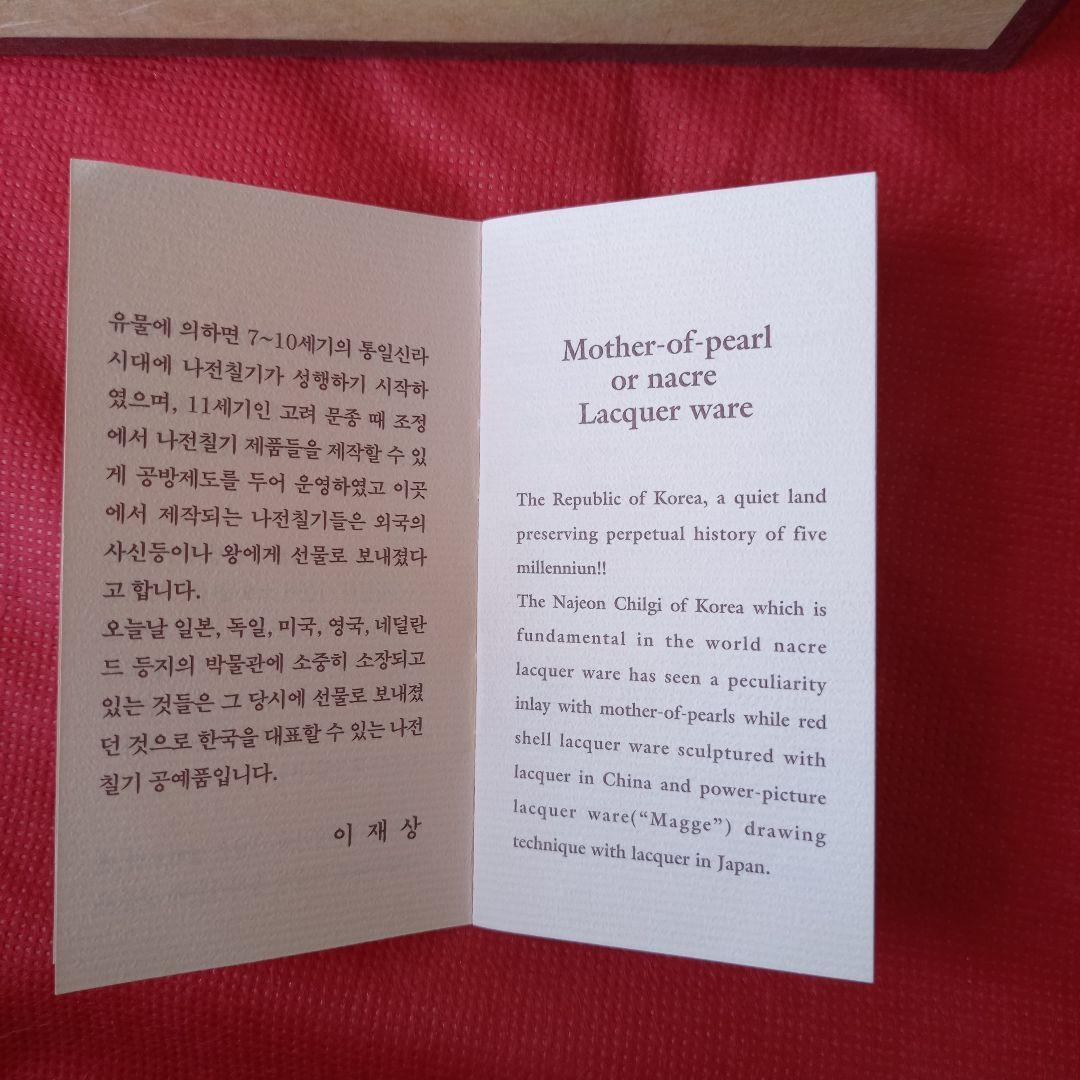 유물에 의하면 7~10세기의 통일신라
시대에 나전칠기가 성행하기 시작하
였으며, 11세기인 고려 문종 때 조정
에서 나전칠기 제품들을 제작할 수 있
게 공방제도를 두어 운영하였고 이곳
에서 제작되는 나전칠기들은 외국의
사신등이나 왕에게 선물로 보내졌다
고 합니다.
오늘날 일본, 독일, 미국, 영국, 네덜란
드 등지의 박물관에 소중히 소장되고
있는 것들은 그 당시에 선물로 보내졌
던 것으로 한국을 대표할 수 있는 나전
칠기 공예품입니다.
이 재 상
Mother-of-pearl
or nacre
Lacquer ware
The Republic of Korea, a quiet land
preserving perpetual history of five
millenniun!!
The Najeon Chilgi of Korea which is
fundamental in the world nacre
lacquer ware has seen a peculiarity
inlay with mother-of-pearls while red
shell lacquer ware sculptured with
lacquer in China and power-picture
lacquer ware(“Magge”) drawing
technique with lacquer in Japan.